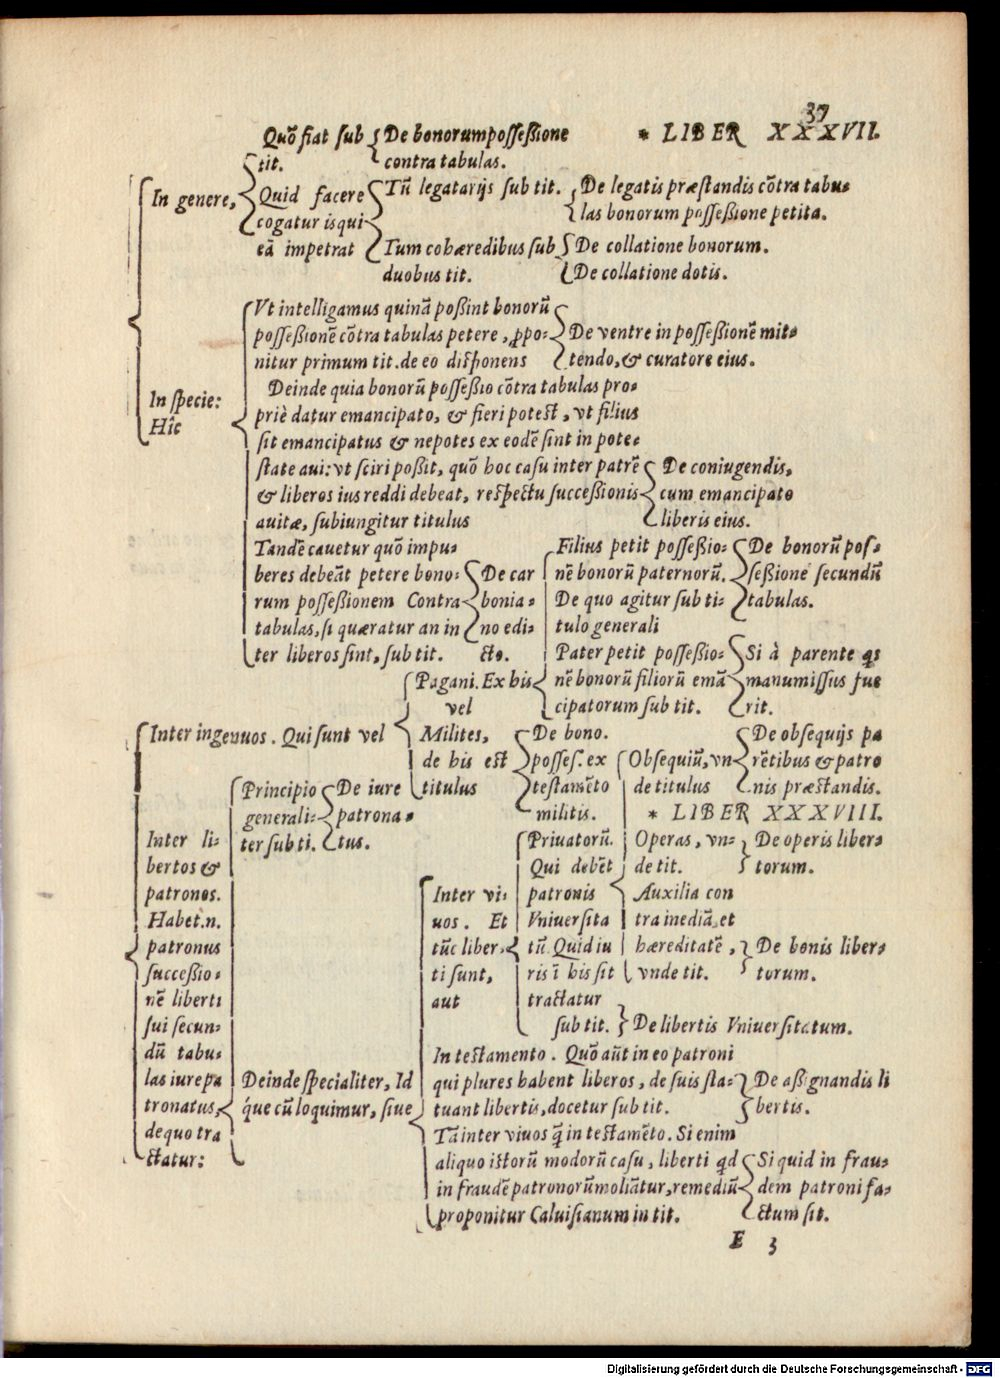 37
* LIBER XXXVII.
Quõ fiat sub
tit.
De bonorumpossessione
contra tabulas.
In genere,
Quid facere
cogatur is qui
eã impetrat
Tũ legatarijs sub tit.
De legatis præstandis cõtra tabu=
las bonorum possessione petita.
Tum cohæredibus sub
duobus tit.
De collatione bonorum.
De collatione dotis.
In specie:
Hîc
Vt intelligamus quinã possint bonorũ
possessionẽ cõtra tabulas petere, ꝓpo=
nitur primum tit. de eo disponens
De ventre in possessionẽ mit=
tendo, & curatore eius.
Deinde quia bonorũ possessio cõtra tabulas pro=
priè datur emancipato, & fieri potest, vt filius
sit emancipatus & nepotes ex eodẽ sint in pote=
state aui: vt sciri possit, quõ hoc casu inter patrẽ
& liberos ius reddi debeat, respectu successionis
auitæ, subiungitur titulus
De coniugendis,
cum emancipato
liberis eius.
Tandẽ cauetur quõ impu=
beres debeãt petere bono=
rum possessionem Contra
tabulas, si quæratur an in
ter liberos sint, sub tit.
De car
bonia=
no edi=
cto.
Inter ingenuos. Qui sunt vel
Pagani. Ex his
vel
Filius petit possessio=
nẽ bonorũ paternorũ.
De quo agitur sub ti=
tulo generali
De bonorũ pos=
sessione secundũ
tabulas.
Pater petit possessio=
nẽ bonorũ filiorũ emã
cipatorum sub tit.
Si à parente qs
manumissus fue
rit.
Milites,
de his est
titulus
De bono.
posses. ex
testamẽto
militis.
Inter li=
bertos &
patronos.
Habet.n.
patronus
successio=
nẽ liberti
sui secun=
dũ tabu=
las iure pa
tronatus,
de quo tra
ctatur:
Principio
generali=
ter sub ti.
De iure
patrona=
tus.
Deinde specialiter, Id
q́ue cũ loquimur, siue
Inter vi=
uos. Et
tũc liber=
ti sunt,
aut
Priuatorũ.
Qui debẽt
patronis
Obsequiũ, vn
de titulus
De obsequijs pa
rẽtibus & patro
nis præstandis.
* LIBER XXXVIII.
Operas, vn=
de tit.
De operis liber=
torum.
Auxilia con
tra inediã, et
hæreditatẽ,
vnde tit.
De bonis liber=
torum.
Vniuersita
tũ. Quid iu
ris ĩ his sit
tractatur
sub tit.
De libertis Vniuersitatum.
In testamento. Quõ aũt in eo patroni
qui plures habent liberos, de suis sta=
tuant libertis, docetur sub tit.
De assignandis li
bertis.
Tã inter viuos q̃ in testamẽto. Si enim
aliquo istorũ modorũ casu, liberti qd
in fraudẽ patronorũ moliãtur, remediũ
proponitur Caluisianum in tit.
Si quid in frau=
dem patroni fa=
ctum sit.
E 3
Digitalisierung gefördert durch die Deutsche Forschungsgemeinschaft - DFG